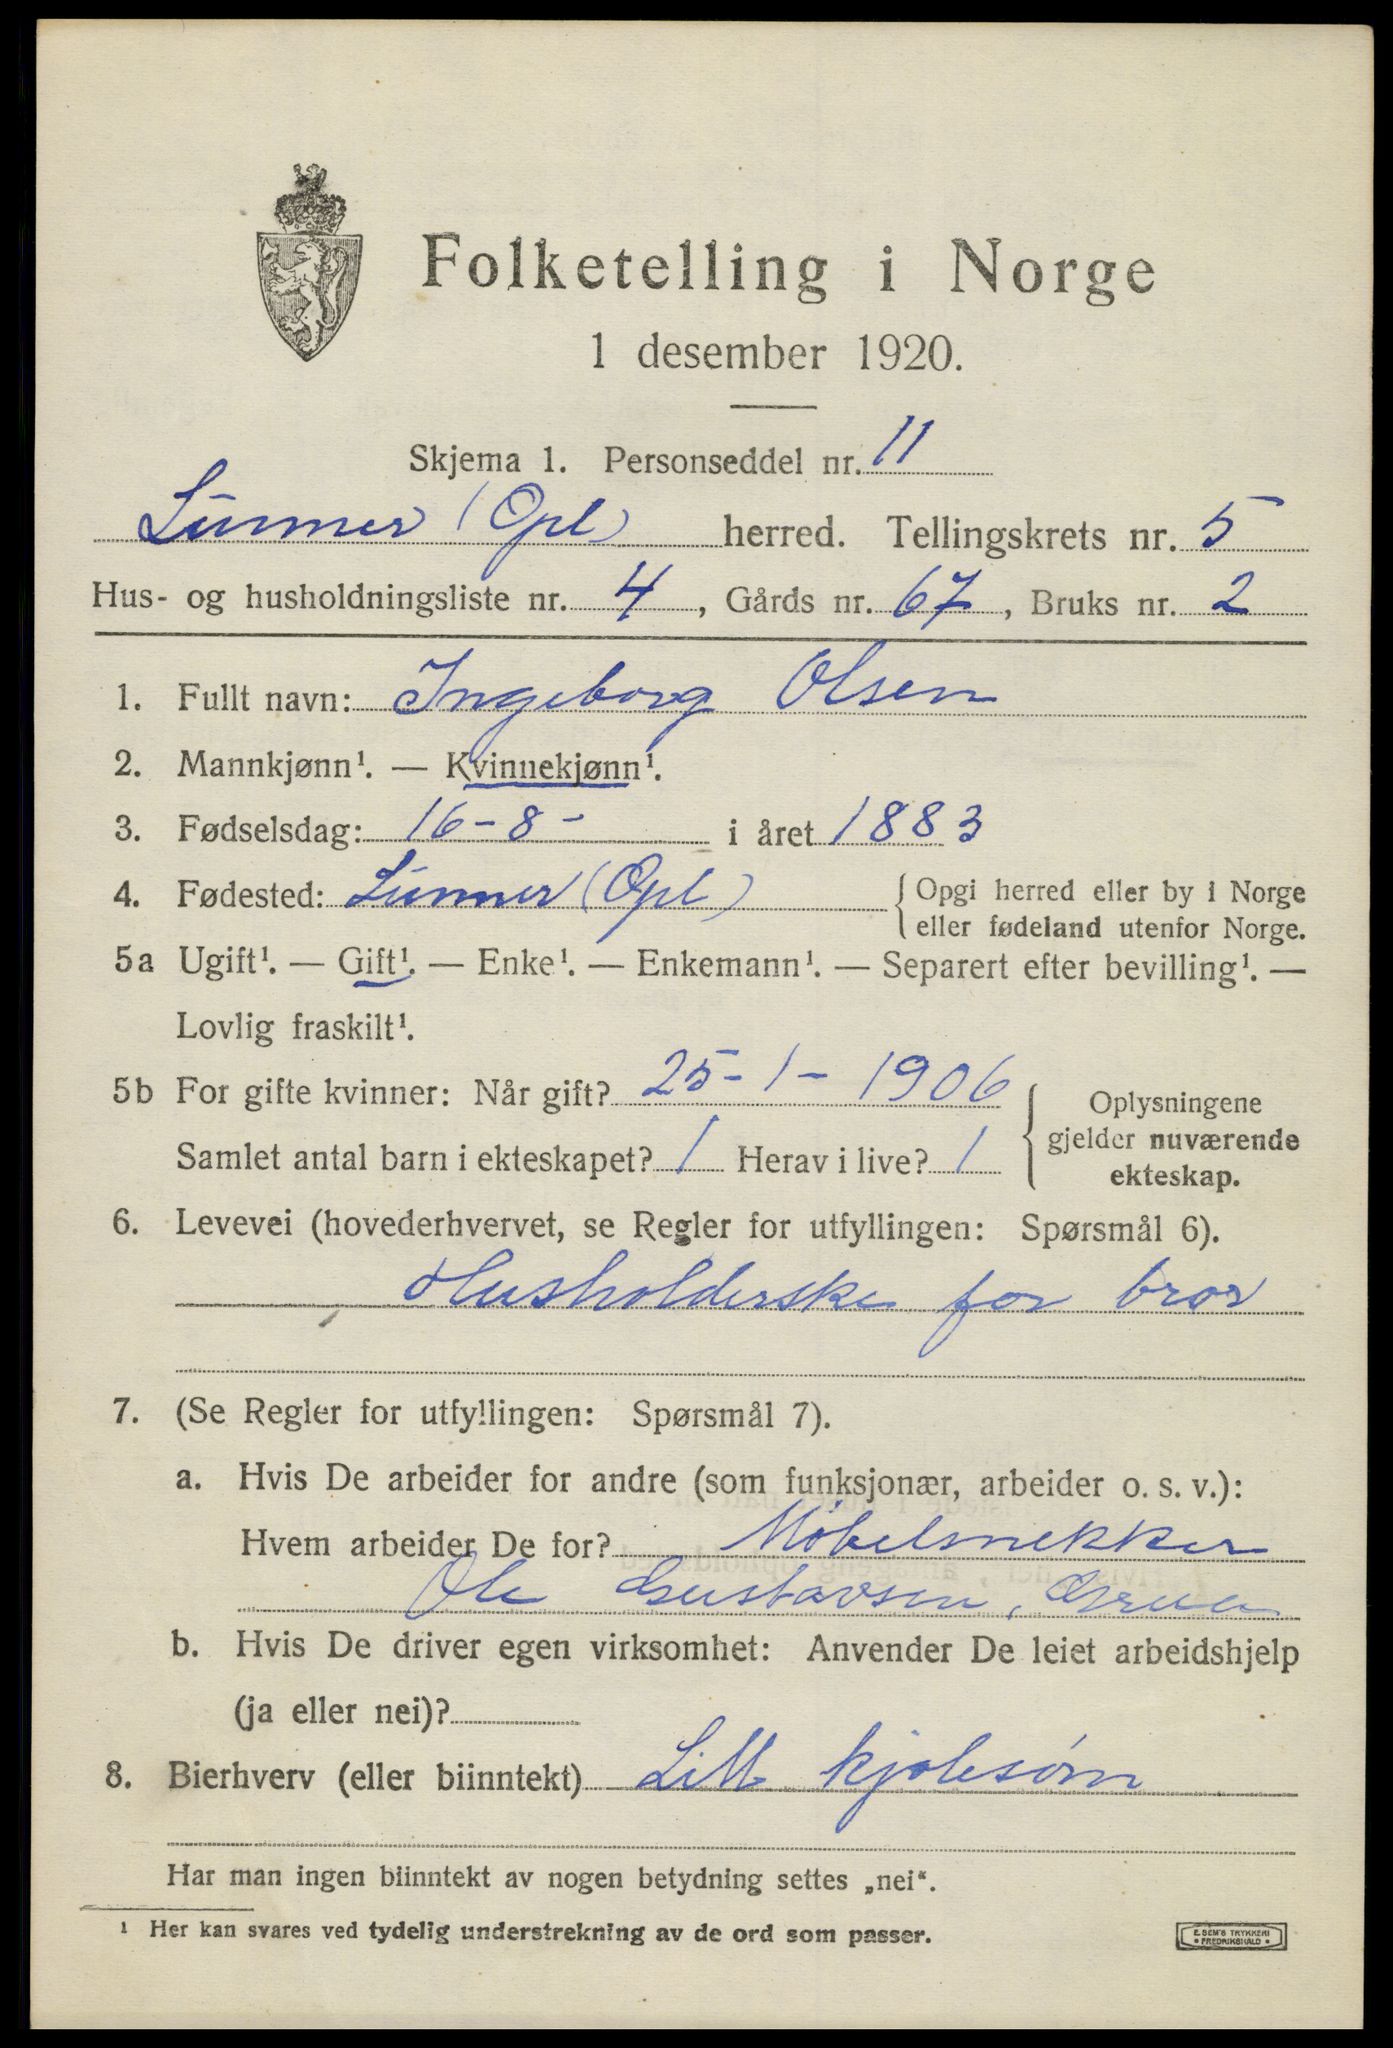 Folketelling i Norge
1 desember 1920.
Skjema 1. Personseddel nr. 11
Lunner (Opl) herred. Tellingskrets nr. 5
Hus- og husholdningsliste nr. 4, Gårds nr. 67, Bruks nr. 2
1. Fullt navn: Ingeborg Olsen
2. Mannkjønn¹. — Kvinnekjønn¹.
3. Fødselsdag: 16-8- i året 1883
4. Fødested: Lunner (Opl) { Opgi herred eller by i Norge
eller fødeland utenfor Norge.
5a Ugift¹. — Gift¹. — Enke¹. — Enkemann¹. — Separert efter bevilling¹. —
Lovlig fraskilt¹.
5b For gifte kvinner: Når gift? 25-1-1906
Samlet antal barn i ekteskapet? 1 Herav i live? 1
Oplysningene
gjelder nuværende
ekteskap.
6. Levevei (hovederhvervet, se Regler for utfyllingen: Spørsmål 6).
Husholderske for bror
7. (Se Regler for utfyllingen: Spørsmål 7).
a. Hvis De arbeider for andre (som funksjonær, arbeider o. s. v.):
Hvem arbeider De for? Møbelsnekker
Ole Gustavsen, Grua
b. Hvis De driver egen virksomhet: Anvender De leiet arbeidshjelp
(ja eller nei)?
8. Bierhverv (eller biinntekt) Litt kjolesøm
Har man ingen biinntekt av nogen betydning settes „nei“.
¹ Her kan svares ved tydelig understrekning av de ord som passer.
E. SEM'S TRYKKERI
• FREDRIKSHALD •